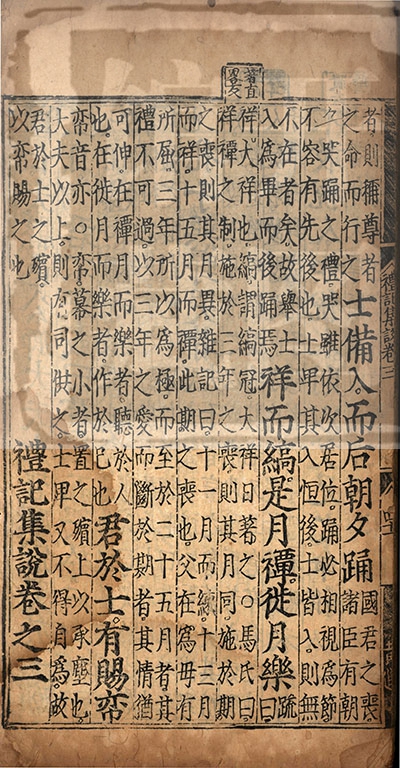 著直
畧反
者則稱尊者
之命而行之
士備入而后朝夕踊
國君之喪
諸臣有朝
夕哭踊之禮哭雖依次居位踊必相視爲節
不容有先後也士卑其入恒後士皆入則無
不在者矣故舉士
入爲畢而後踊焉
祥而縞是月禫徙月樂
疏
曰
祥大祥也縞謂縞冠大祥日著之○馬氏曰
祥禫之制施於三年之喪則其月同施於期
之喪則其月異雜記曰十一月而練十三月
而祥十五月而禫此期之喪也父在爲母有
所屈三年所以爲極而至於二十五月者其
禮不可過以三年之愛而斷於期者其情猶
可伸在禫月而樂者聽於人
也在徙月而樂者作於己也
君於士有賜帟
帟音亦○帟幕之小者置之殯上以承塵也
大夫以上則有司供之士卑又不得自爲故
君於士之殯
以帟賜之也
禮記集說卷之三
禮記集說卷三